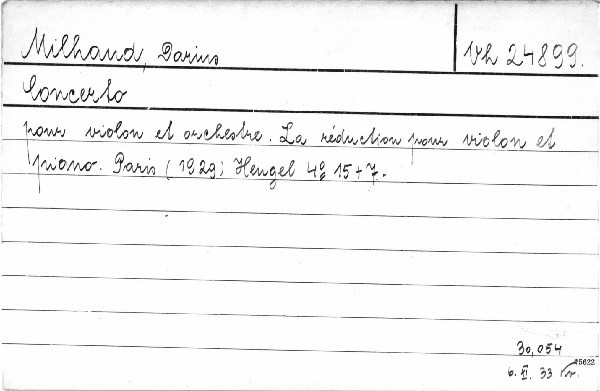 Milhaud, Darius
Vh 24899.
Concerto
pour violon et orchestre. La réduction pour violon et
piano. Paris (1929) Hengel 4º 15+7.
30,054
15622
6. II. 33